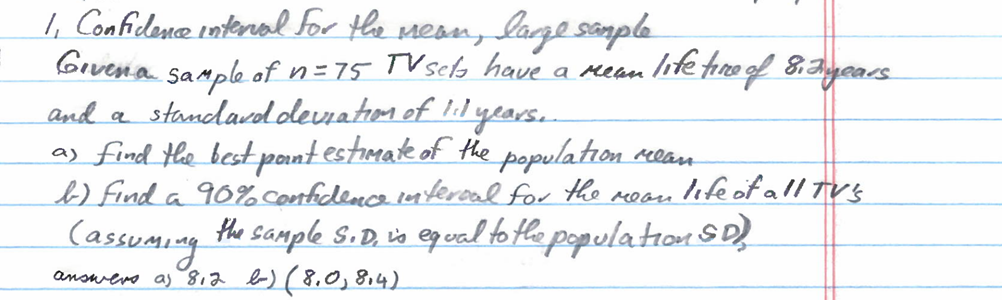 1, Confidence interval for the mean, large sample
Given a sample of n=75 TV sets have a mean life time of 8.2 years
and a standard deviation of 1.1 years.
a) find the best point estimate of the population mean
b) find a 90% confidence interval for the mean life of all TV's
(assuming the sample S.D. is equal to the population SD)
answers a) 8.2 b) (8.0, 8.4)